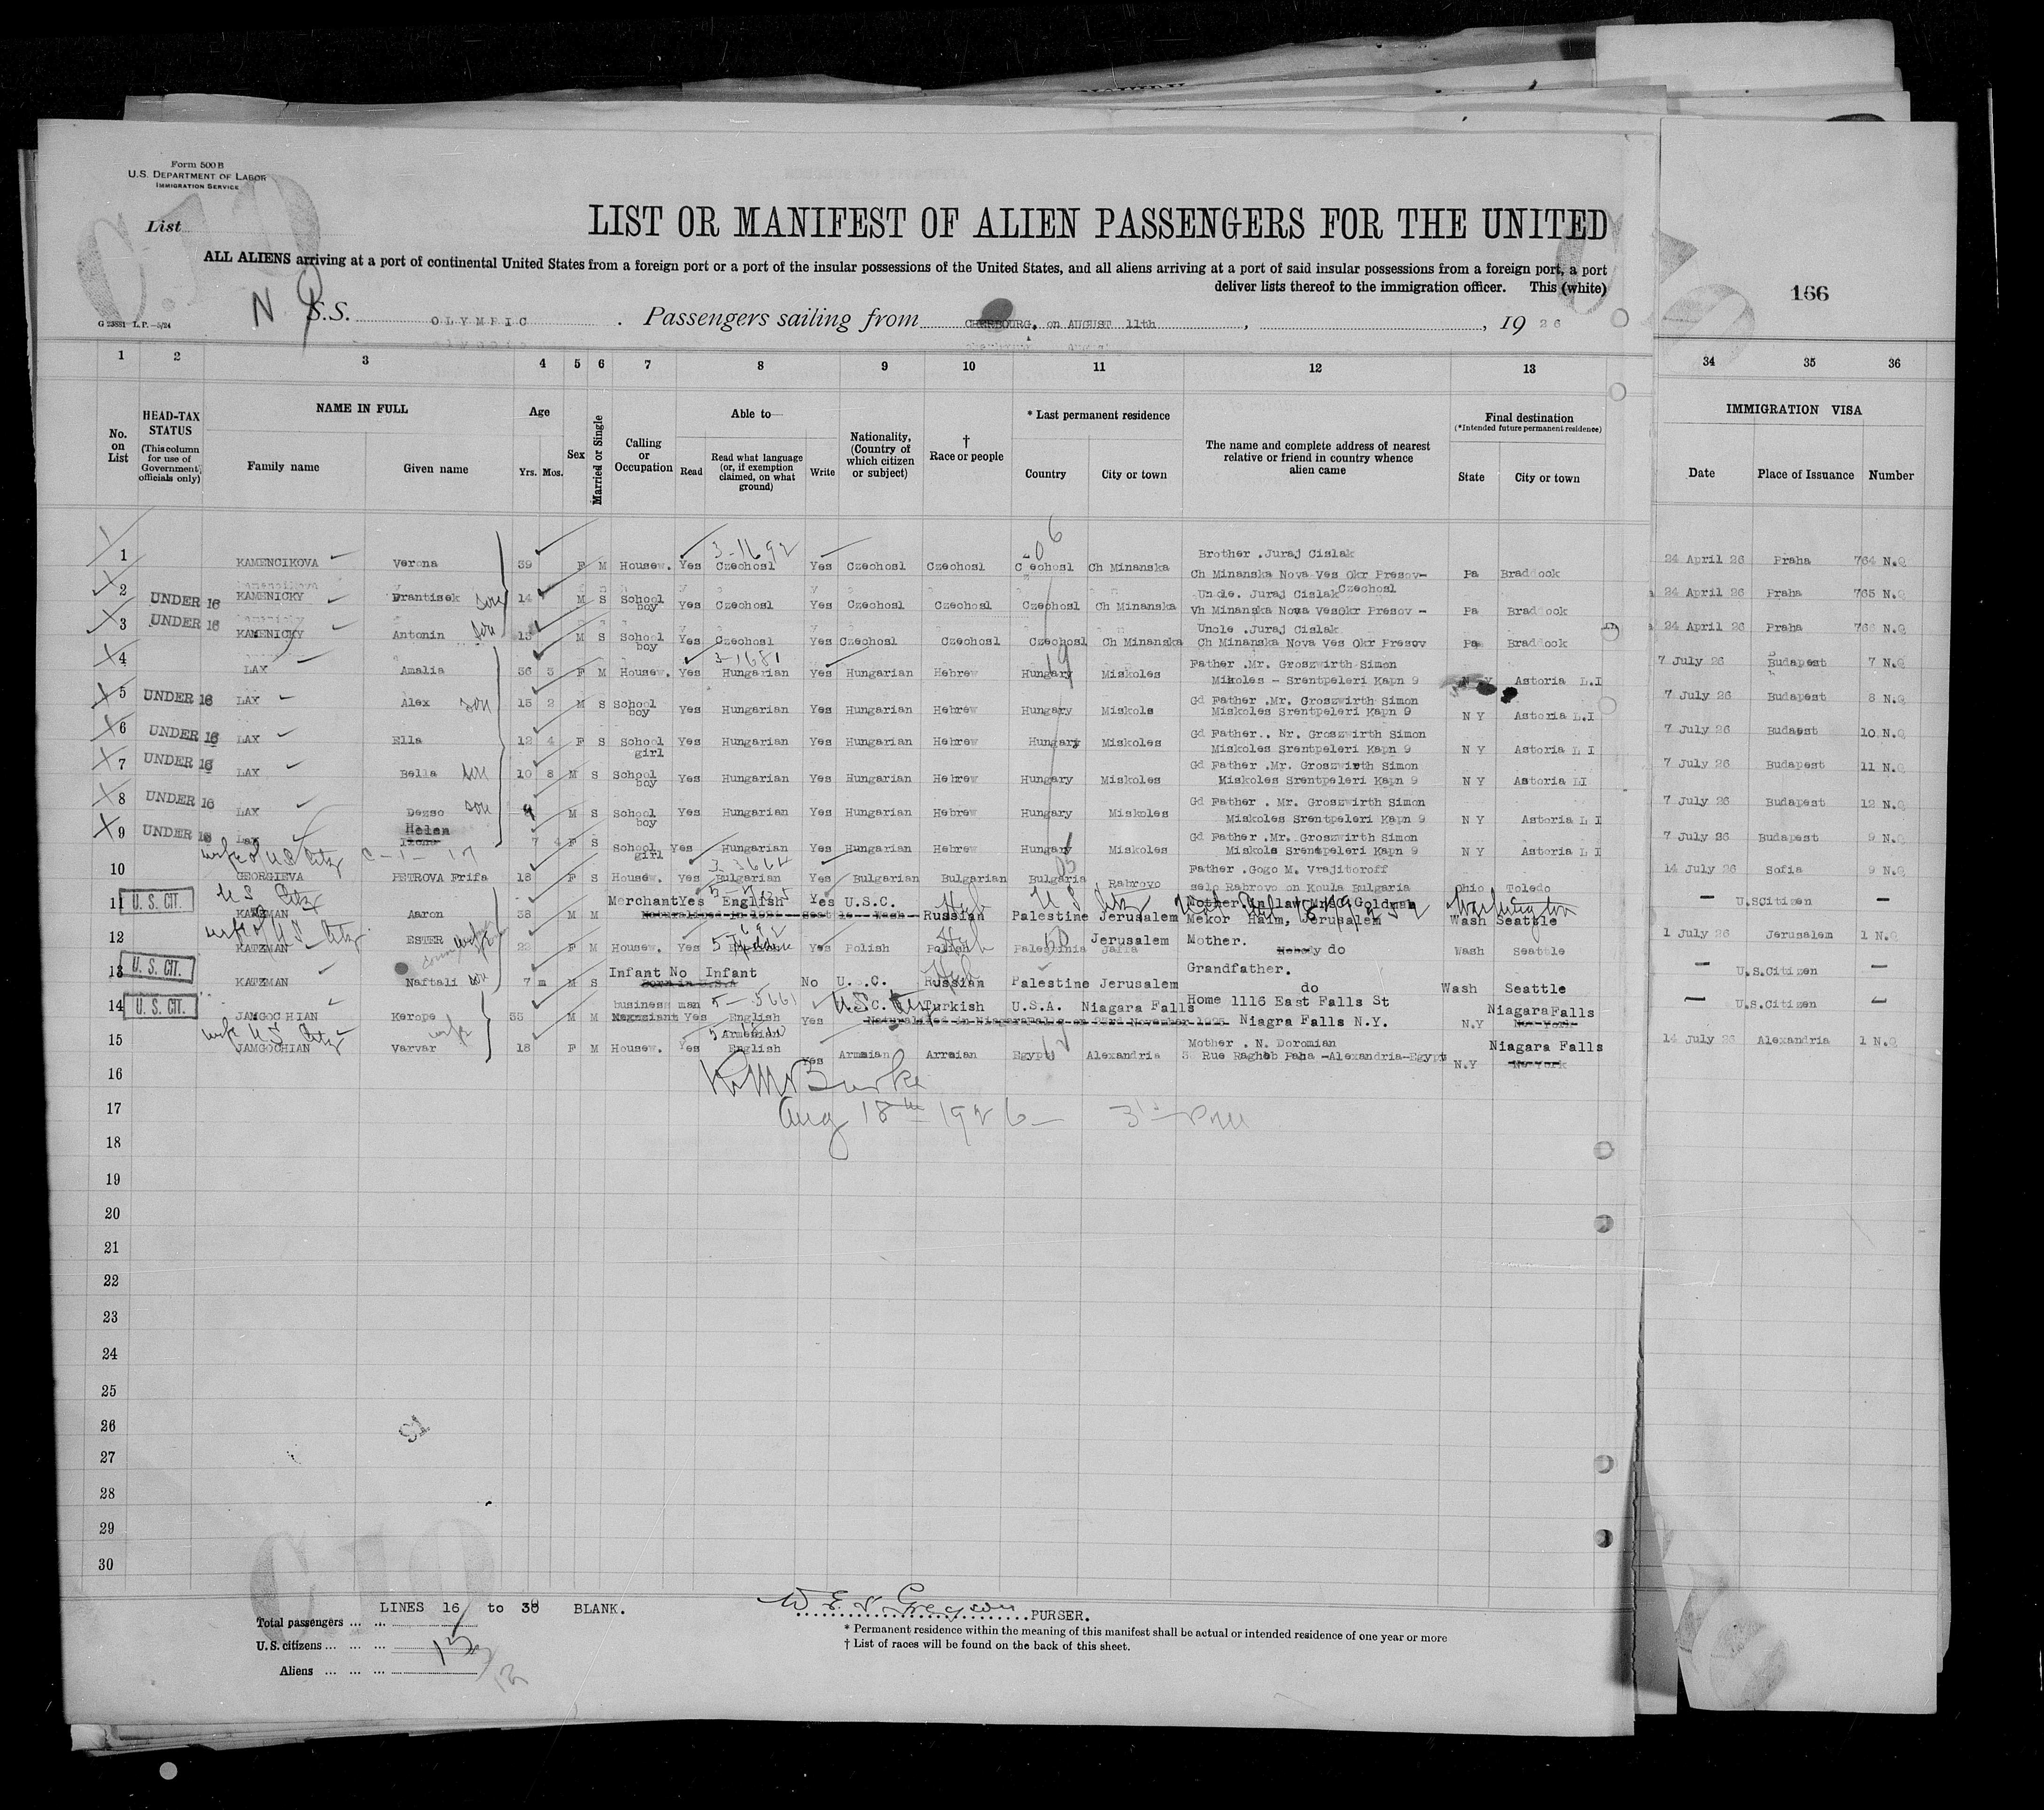 Form 500 B
U.S. DEPARTMENT OF LABOR
IMMIGRATION SERVICE
List
LIST OR MANIFEST OF ALIEN PASSENGERS FOR THE UNITED
ALL ALIENS arriving at a port of continental United States from a foreign port or a port of the insular possessions of the United States, and all aliens arriving at a port of said insular possessions from a foreign port, a port
deliver lists thereof to the immigration officer. This (white)
166
S.S. OLYMPIC . Passengers sailing from CHERBOURG, on AUGUST 11th , , 19 26
1 2 3 4 5 6 7 8 9 10 11 12 13 34 35 36
No. on List
HEAD-TAX STATUS (This column for use of Government officials only)
NAME IN FULL
Family name Given name
Age
Yrs. Mos.
Sex
Married or Single
Calling or Occupation
Able to—
Read Read what language (or, if exemption claimed, on what ground) Write
Nationality, (Country of which citizen or subject)
† Race or people
* Last permanent residence
Country City or town
The name and complete address of nearest relative or friend in country whence alien came
Final destination
(*Intended future permanent residence)
State City or town
IMMIGRATION VISA
Date Place of Issuance Number
3-1692
Brother .Juraj Cislak
1 KAMENCIKOVA Verona 39 F M Housew. Yes Czechosl Yes Czechosl Czechosl Czechosl Ch Minanska Ch Minanska Nova Ves Okr Presov- Pa Braddock 24 April 26 Praha 764 N.Q
Uncle. Juraj Cislak Czechosl
2 UNDER 16 KAMENICKY Frantisek son 14 M S School boy Yes Czechosl Yes Czechosl Czechosl Czechosl Ch Minanska Vh Minanska Nova VesOkr Presov - Pa Braddock 24 April 26 Praha 765 N.Q
Uncle .Juraj Cislak
3 UNDER 16 KAMENICKY Antonin son 13 M S School boy Yes Czechosl Yes Czechosl Czechosl Czechosl Ch Minanska Ch Minanska Nova Ves Okr Presov Pa Braddock 24 April 26 Praha 766 N.Q
3-1681
Father .Mr. Groszwirth Simon
4 LAX Amalia 36 5 F M Housew. Yes Hungarian Yes Hungarian Hebrew Hungary Miskoles Mikoles - Srentpeleri Kapn 9 N Y Astoria L.I 7 July 26 Budapest 7 N.Q
Gd Father .Mr. Groszwirth Simon
5 UNDER 16 LAX Alex son 15 2 M S School boy Yes Hungarian Yes Hungarian Hebrew Hungary Miskols Miskoles Srentpeleri Kapn 9 N Y Astoria L.I 7 July 26 Budapest 8 N.Q
Gd Father.. Nr. Groszwirth Simon
6 UNDER 16 LAX Ella 12 4 F S School girl Yes Hungarian Yes Hungarian Hebrew Hungary Miskoles Miskoles Srentpeleri Kapn 9 N Y Astoria L I 7 July 26 Budapest 10 N.Q
Gd Father .Mr. Groszwirth Simon
7 UNDER 16 LAX Bella son 10 8 M S School boy Yes Hungarian Yes Hungarian Hebrew Hungary Miskoles Miskoles Srentpeleri Kapn 9 N Y Astoria LI 7 July 26 Budapest 11 N.Q
Gd Father . Mr. Groszwirth Simon
8 UNDER 16 LAX Dezso son 9 M S School boy Yes Hungarian Yes Hungarian Hebrew Hungary Miskoles Miskoles Srentpeleri Kapn 9 N Y Astoria L I 7 July 26 Budapest 12 N.Q
Helen
Gd Father .Mr. Groszwirth Simon
9 UNDER 16 Lax 7 4 F S School girl Yes Hungarian Yes Hungarian Hebrew Hungary Miskoles Miskols Srentpeleri Kapn 9 N Y Astoria L I 7 July 26 Budapest 9 N.Q
wife of U S Citz 3 3664
Father .Gogo M. Vrajitoroff
10 GEORGIEVA PETROVA Frifa 18 F S Housew. Yes Bulgarian Yes Bulgarian Bulgarian Bulgaria Rabrovo selo Rabrovo on Koula Bulgaria Ohio Toledo 14 July 26 Sofia 9 N.Q
11 U. S. CIT. U S Citz Merchant Yes English Yes U.S.C. Heb U S Citz Mother in law Mrs G Goldman Washington — U.SCitizen —
KATZMAN Aaron 38 M M Naturalised in 1921 Seattle Wash Russian Palestine Jerusalem Mekor Haim, Jerusalem Wash Seattle
wife of U S Citz
12 KATZMAN ESTER wife 22 F M Housew. Yes Yes Polish Heb Palestinia Jerusalem Jaffa Mother. do Wash Seattle 1 July 26 Jerusalem 1 N.Q
13 U. S. CIT. KATZMAN Naftali son 7 m M S Infant No Infant Born in U.S.A No U.S.C. Heb Russian Palestine Jerusalem Grandfather. do Wash Seattle — U.S.Citizen —
14 U. S. CIT. JAMGOCHIAN Kerope 35 M M business man Yes 5-5661 English Yes U.S.C. Turkish U.S.A. Niagara Falls Home 1116 East Falls St — U.S.Citizen —
Naturalised in NiagaraFalls on 23rd November 1925 Niagra Falls N.Y. N.Y NiagaraFalls New York
wife U S Citz
15 JAMGOCHIAN Varvar wife 18 F M Housew. Yes Armenian English Yes Armaian Arraian Egypt Alexandria Mother . N. Doromian
3 Rue Raghob Paha -Alexandria-Egypt N.Y Niagara Falls New York 14 July 26 Alexandria 1 N.Q
16
17 Aug 18th 1926
18
19
20
21
22
23
24
25
26
27
28
29
30
LINES 16 to 30 BLANK.
PURSER.
Total passengers ... ...
U.S. citizens ... ... ...
Aliens ... ... ...
* Permanent residence within the meaning of this manifest shall be actual or intended residence of one year or more
† List of races will be found on the back of this sheet.